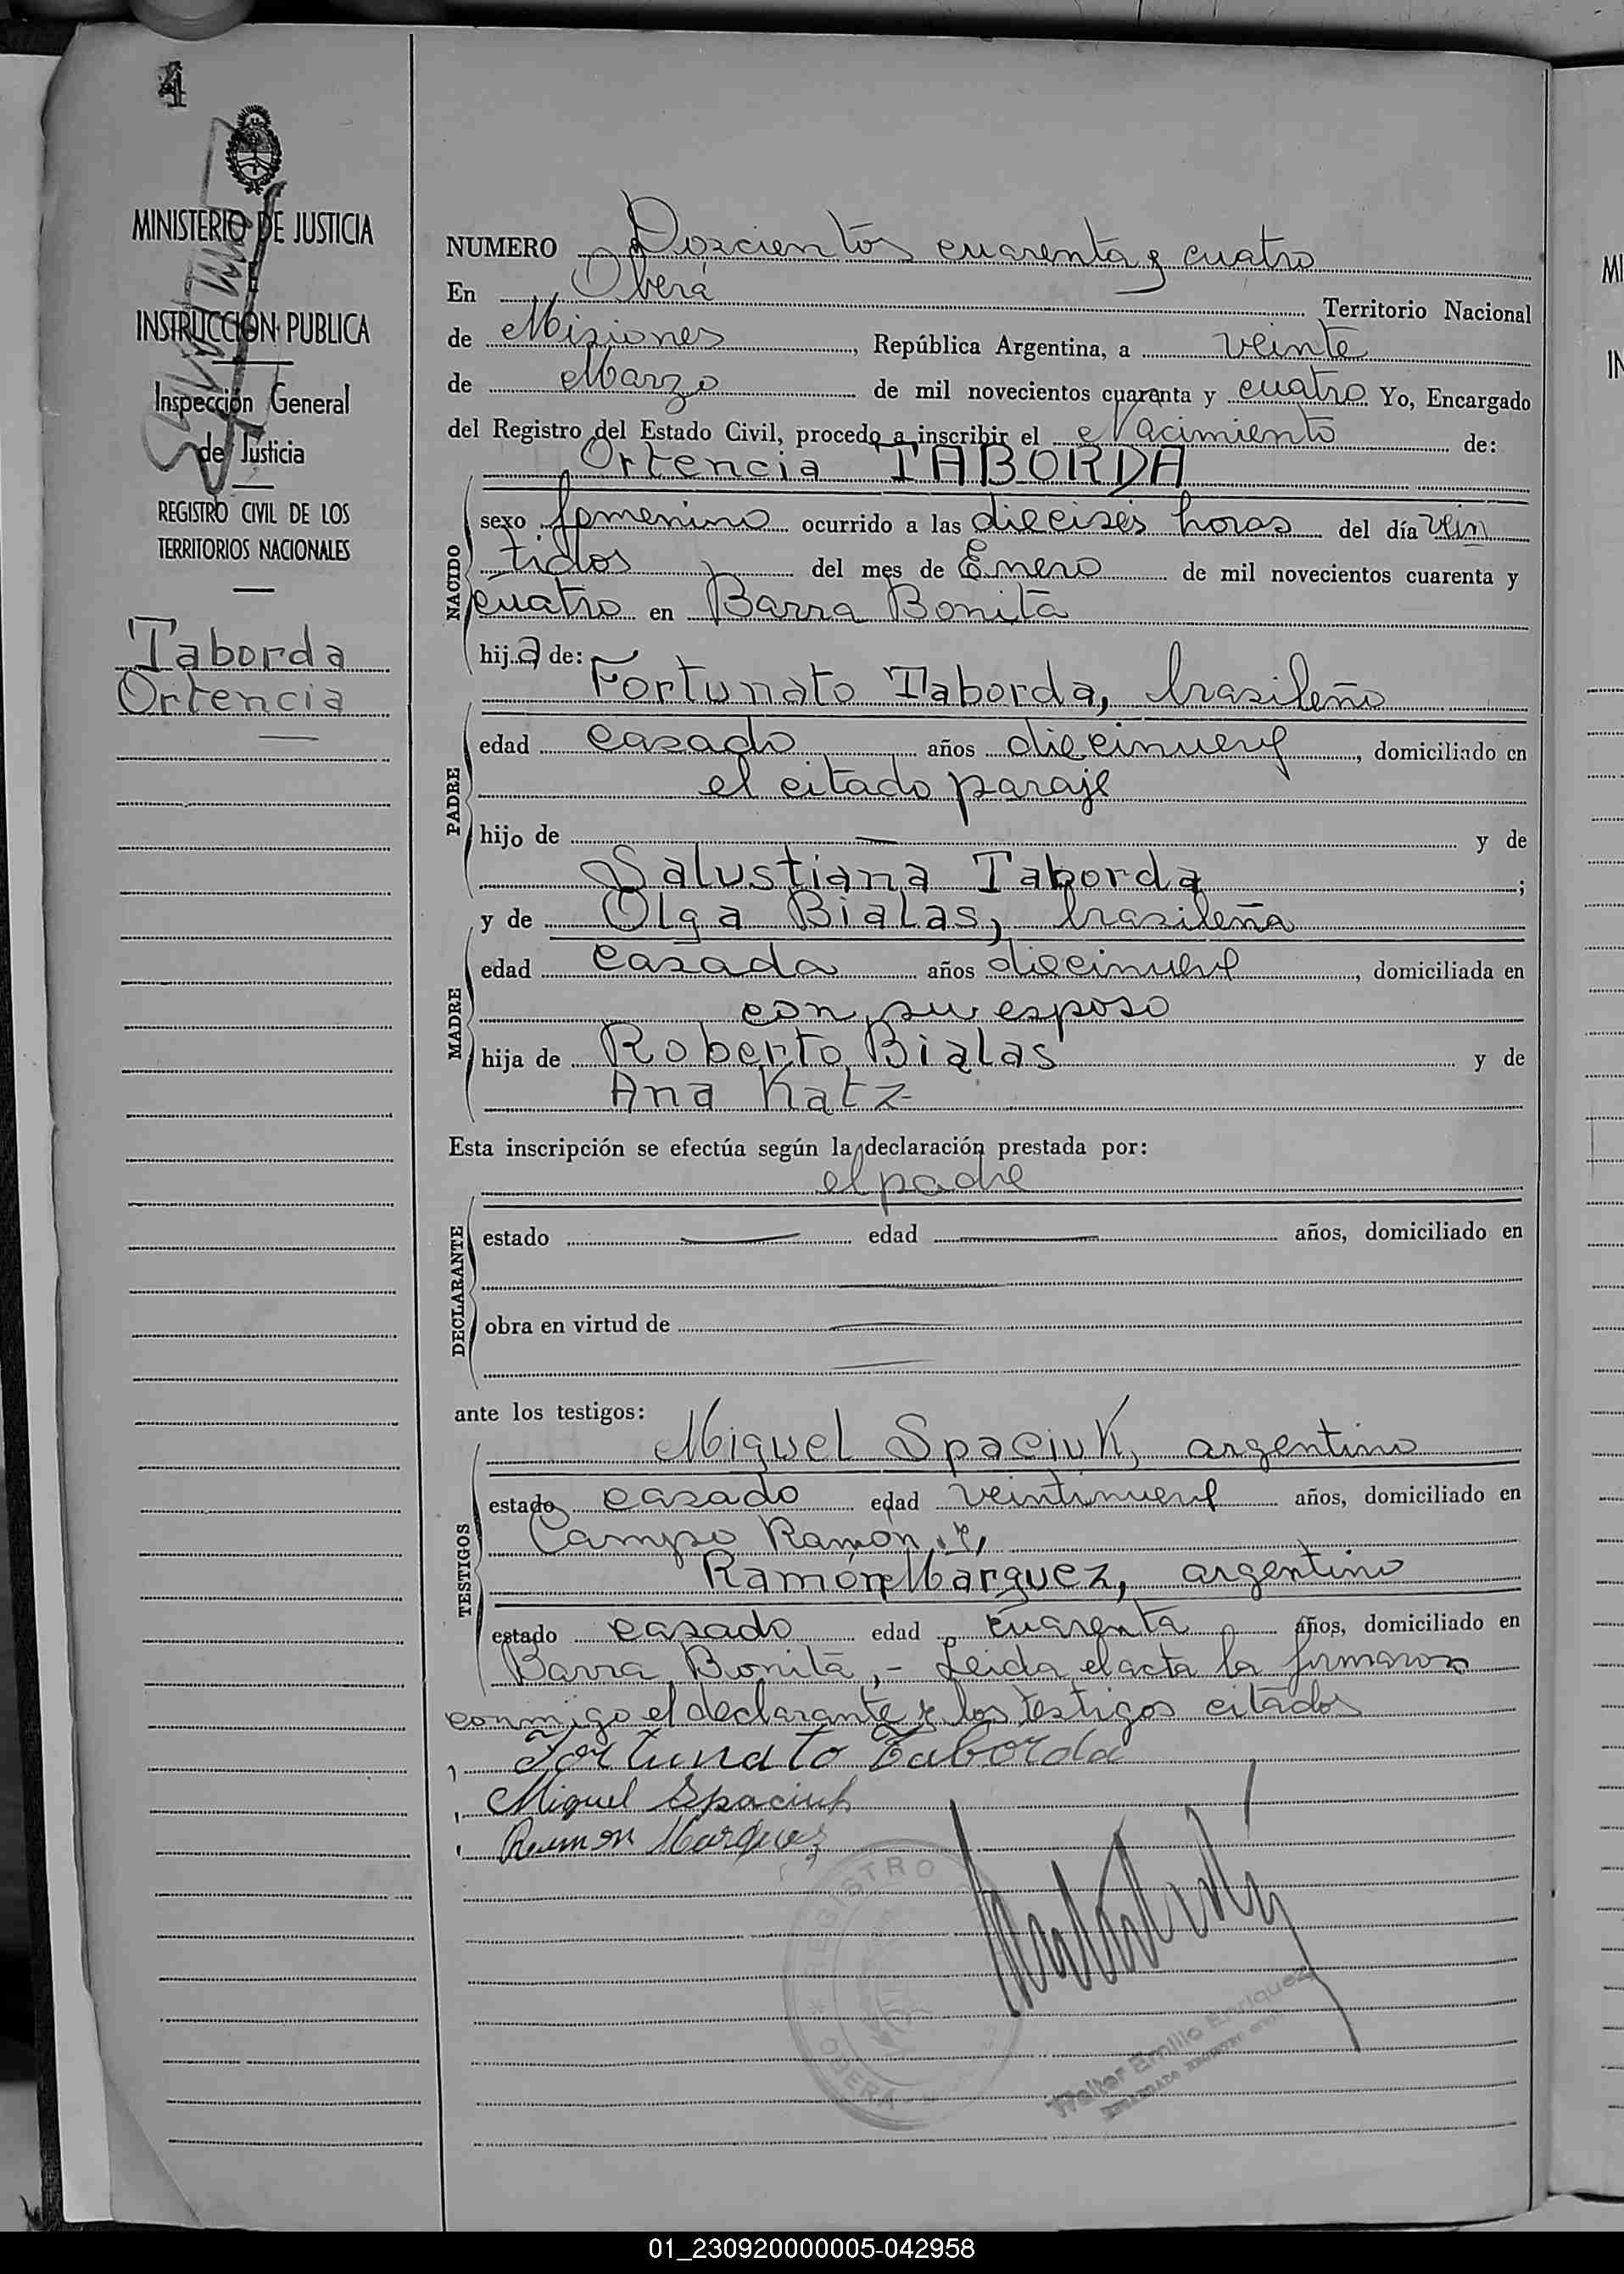 MINISTERIO DE JUSTICIA
INSTRUCCION PUBLICA
Inspección General
de Justicia
REGISTRO CIVIL DE LOS
TERRITORIOS NACIONALES
Taborda
Ortencia
NUMERO Doscientos cuarenta y cuatro
En Oberá Territorio Nacional
de Misiones, República Argentina, a veinte
de Marzo de mil novecientos cuarenta y cuatro Yo, Encargado
del Registro del Estado Civil, procedo a inscribir el Nacimiento de:
Ortencia TABORDA
NACIDO
sexo femenino ocurrido a las dieciseis horas del día vein
tidos del mes de Enero de mil novecientos cuarenta y
cuatro en Barra Bonita
hija de:
Fortunato Taborda, brasileño
PADRE
edad casado años diecinueve, domiciliado en
el citado paraje
hijo de — y de
Salustiana Taborda;
y de Olga Bialas, brasileña
MADRE
edad casada años diecinueve, domiciliada en
con su esposo
hija de Roberto Bialas y de
Ana Katz
Esta inscripción se efectúa según la declaración prestada por:
el padre
DECLARANTE
estado — edad — años, domiciliado en
obra en virtud de —
ante los testigos:
Miguel Spaciuk, argentino
TESTIGOS
estado casado edad veintinueve años, domiciliado en
Campo Ramón y,
Ramón Marquez, argentino
estado casado edad cuarenta años, domiciliado en
Barra Bonita,- Leida el acta la firmaron
conmigo el declarante y los testigos citados
Fortunato Taborda
Miguel Spaciuk
Ramon Marquez
REGISTRO
OBERA
Walter Emilio Enriquez
01_230920000005-042958